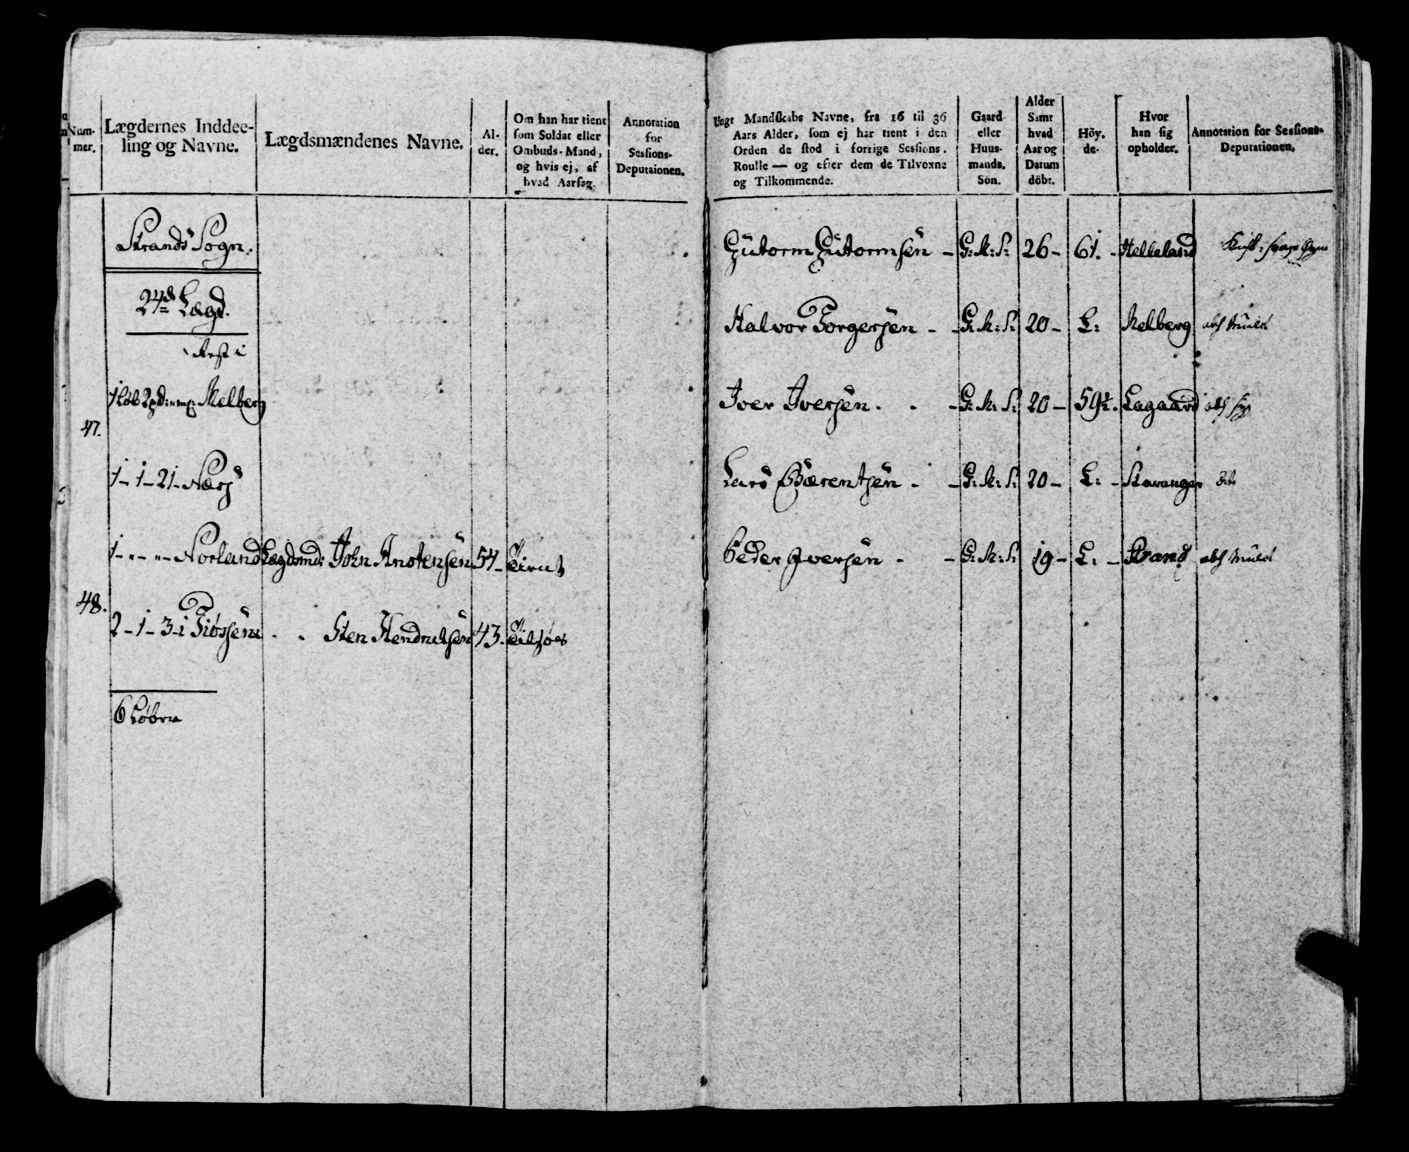 Num-
mer.
Lægdernes Inddee-
ling og Navne.
Lægdsmændenes Navne.
Al-
der.
Om han har tient
som Soldat eller
Ombuds-Mand,
og hvis ej, af
hvad Aarsag.
Annotation
for
Sessions-
Deputaionen.
Strands Sogn.
24de Lægd.
Rest i
1 Løb 2 pd: Melberg
47.
1-1-21-Næss
1-"-"-Norland Lægdsmd: John Knutensen 54-
48.
2-1-3-i Tiøssem - - Sten Hendricksen 43.
6 Løber
Unge Mandskabs Navne, fra 16 til 36
Aars Alder, som ej har tient i den
Orden de stod i forrige Sessions-
Roulle — og efter dem de Tilvoxne
og Tilkommende.
Gaard
eller
Huus-
mands.
Sön.
Alder
Samt
hvad
Aar og
Datum
döbt.
Höy-
de.
Hvor
han sig
opholder.
Annotation for Sessions-
Deputationen.
Gutorm Gutormsen - G: M: S: 26- 61. - Helleland
Halvor Torgersen - - G: M: S: 20- L: Melberg
Iver Iversen. - - G: M: S: 20- 59½. Lagaard
Lars Bærentsen - - G: M: S: 20- L: - Stavanger dito
Peder Iversen - - G: M: S: 19- L: - Strand